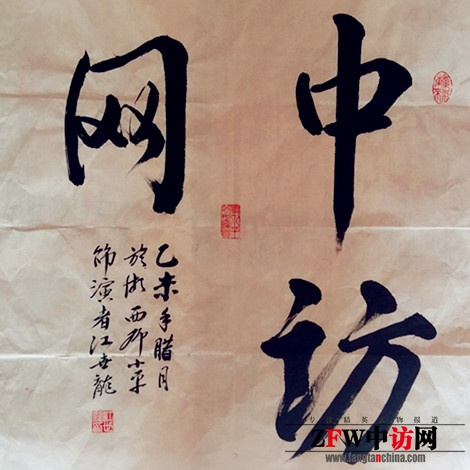 中访
网
乙未年腊月
於湘西邓小平
饰演者江世龍
ZFW中访网
www.fangtanchina.com